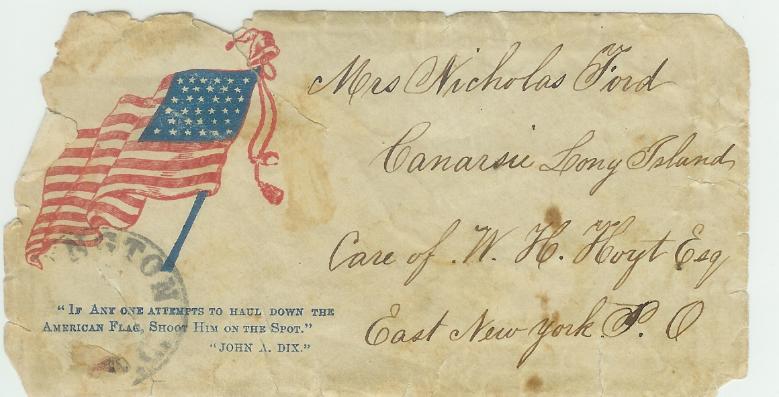 Mrs Nicholas Ford
Canarsie Long Island
Care of W. H. Hoyt Esq
East New York P. O
NGTON
"If Any one attempts to haul down the
American Flag, Shoot Him on the Spot."
"JOHN A. DIX."